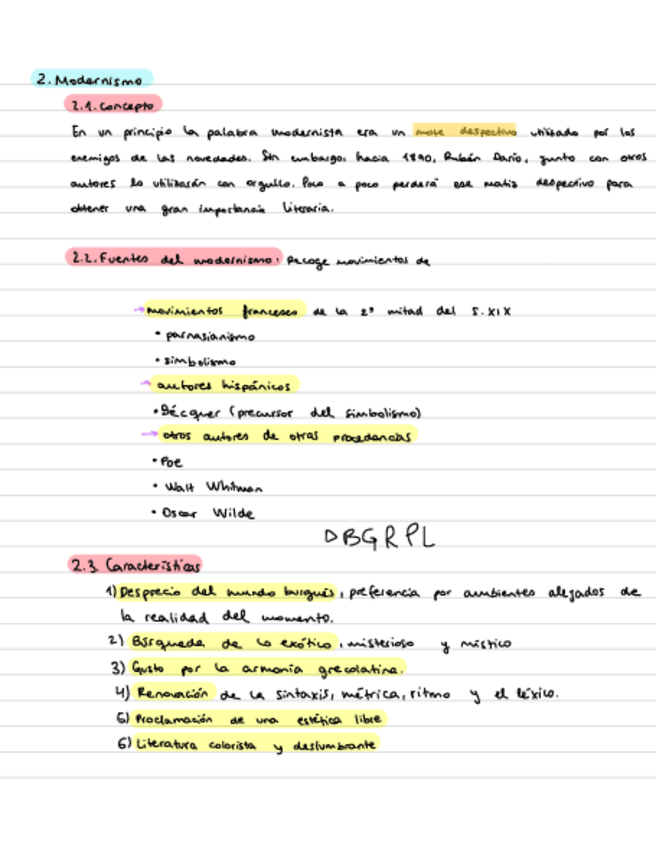 2. Modernismo
2.1. Concepto
En un principio la palabra modernista era un mote despectivo utilizado por los
enemigos de las novedades. Sin embargo, hacia 1890, Rubén Darío, junto con otros
autores lo utilizarán con orgullo. Poco a poco perderá ese matiz despectivo para
obtener una gran importancia literaria.
2.2. Fuentes del modernismo: Recoge movimientos de
→ movimientos franceses de la 2ª mitad del S. XIX
• parnasianismo
• simbolismo
→ autores hispánicos
• Bécquer (precursor del simbolismo)
→ otros autores de otras procedencias
• Poe
• Walt Whitman
• Oscar Wilde
DBGRPL
2.3. Características
1) Desprecio del mundo burgués, preferencia por ambientes alejados de
la realidad del momento.
2) Búsqueda de lo exótico, misterioso y místico
3) Gusto por la armonía grecolatina.
4) Renovación de la sintaxis, métrica, ritmo y el léxico.
5) Proclamación de una estética libre
6) Literatura colorista y deslumbrante